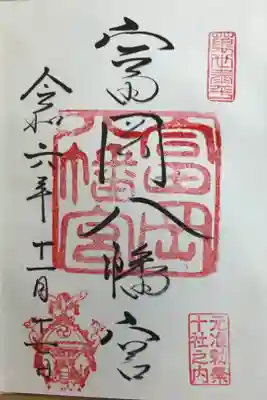 富岡八幡宮
富岡
八幡宮
元准勅祭
十社之内
令和六年十一月十一日